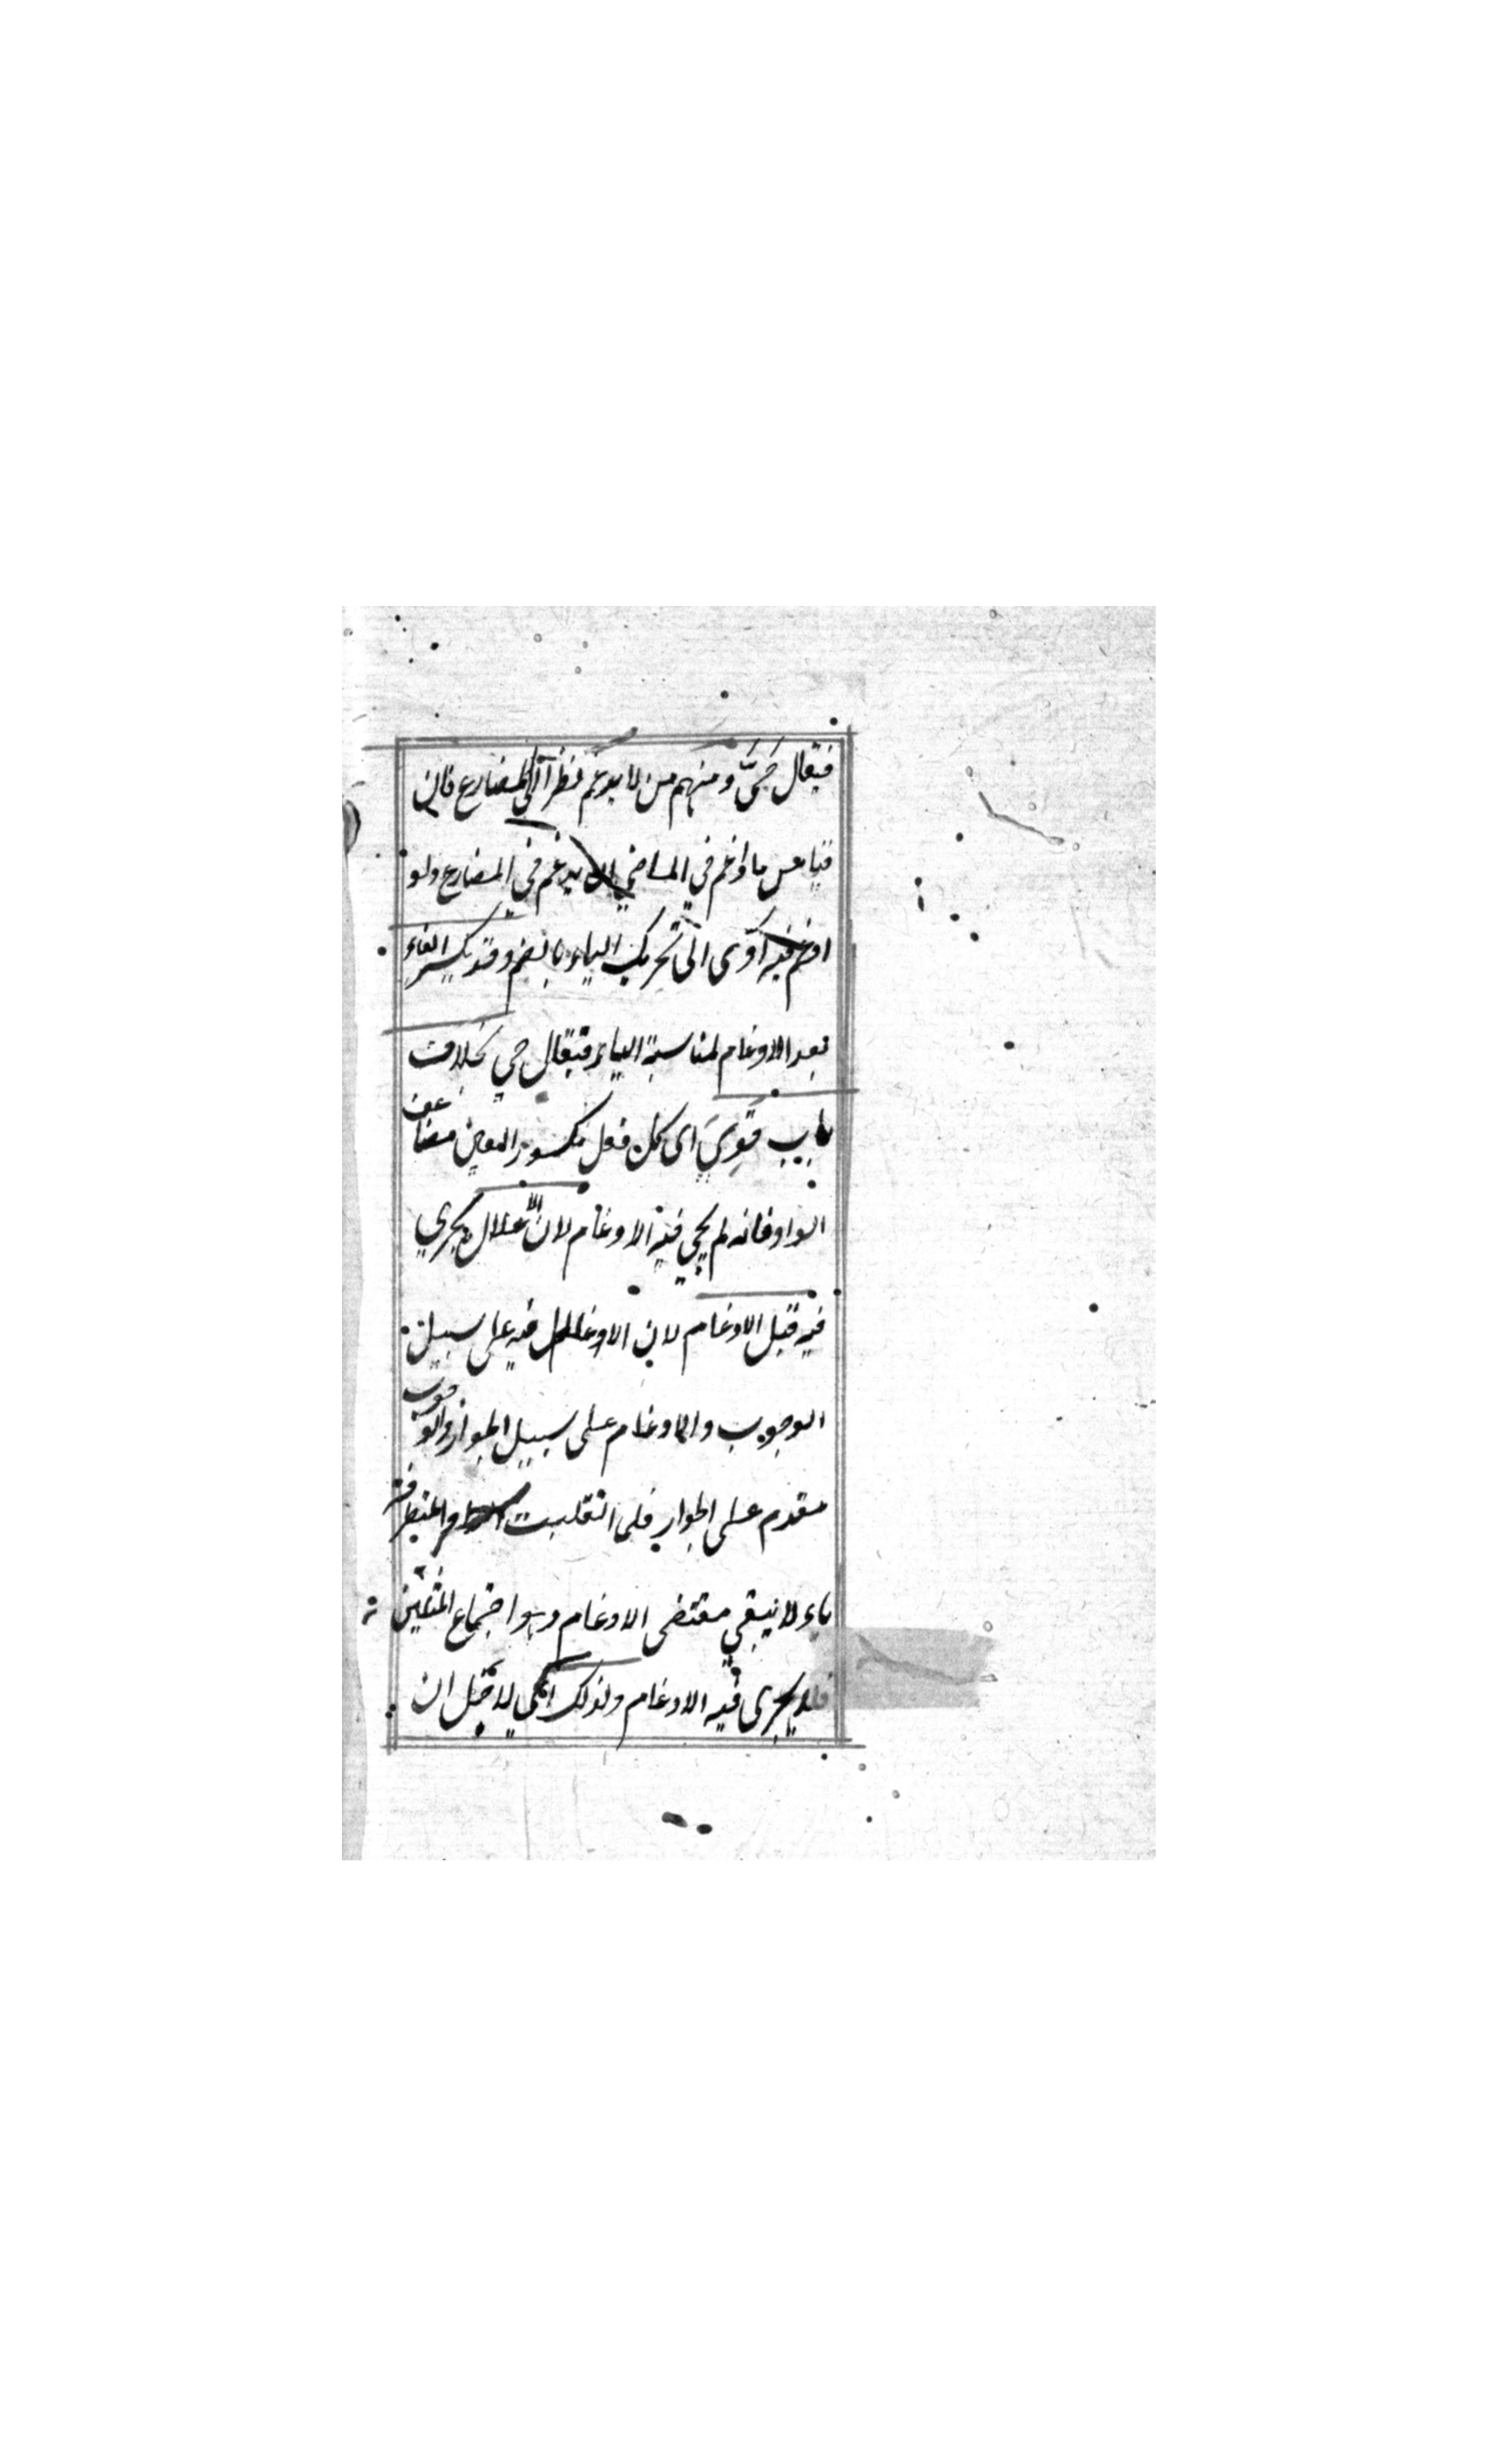 فيقال حَىَّ ومنهم من لا يدغم نظرا الى المضارع فان
قياس ما ادغم في الماضي ان يدغم في المضارع ولو
ادغم فيه ادّى الى تحريك الياء بالضم وقد يكسر الفاء
بعد الادغام لمناسبة الياء فيقال حي بخلاف
باب قَوِيَ اى كل فعل مكسور العين مضاعف
الواو فانه لم يجئ فيه الادغام لان الاعلال يجري
فيه قبل الادغام لان الاعلال فيه على سبيل
الوجوب والادغام على سبيل الجواز والوجوب
مقدم على الجواز فلما انقلبت الواو المتطرفة
ياء لا يبقى مقتضى الادغام وهو اجتماع المثلين
فلا يجرى فيه الادغام ولذلك اى لاجل ان